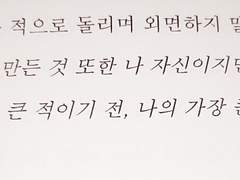 적으로 돌리며 외면하지 말
만든 것 또한 나 자신이지만
큰 적이기 전, 나의 가장 큰